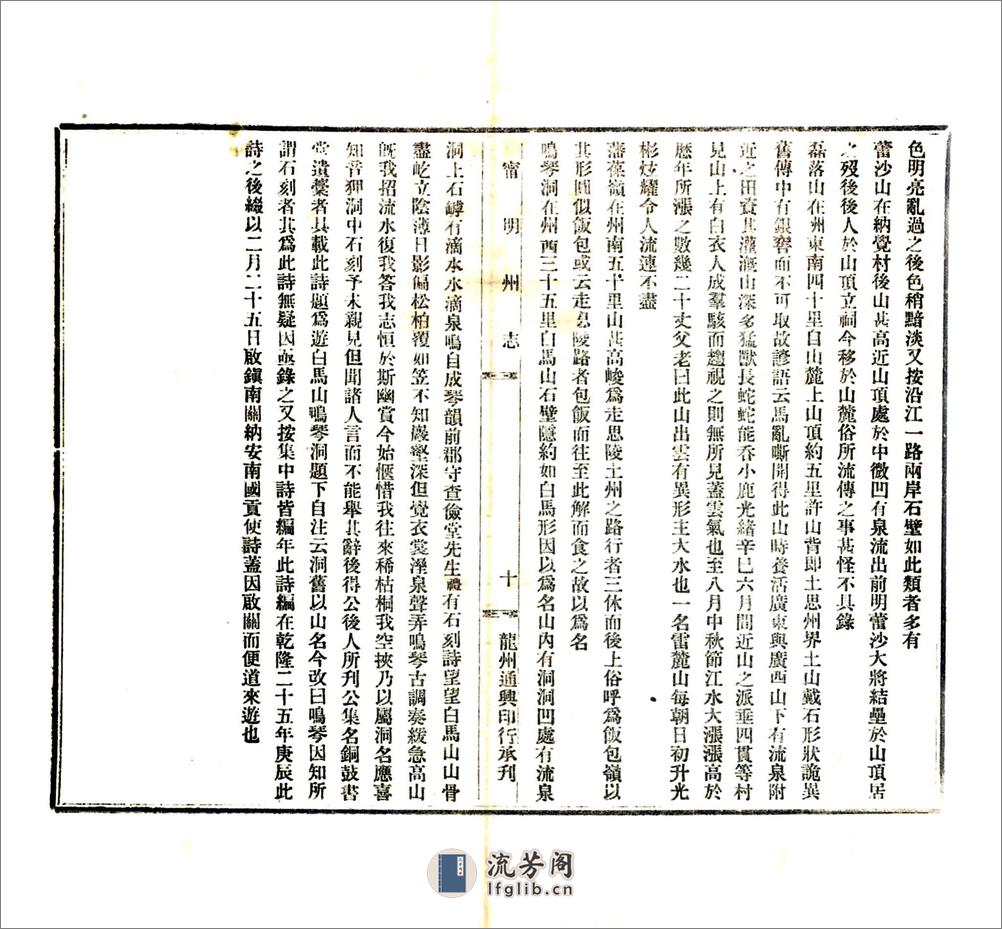 色明亮亂過之後色稍黯淡又按沿江一路兩岸石壁如此類者多有
蕾沙山在納覺村後山甚高近山頂處於中微凹有泉流出前明蕾沙大將結壘於山頂居
之歿後後人於山頂立祠今移於山麓俗所流傳之事甚怪不具錄
磊落山在州東南四十里自山麓上山頂約五里許山背即土思州界土山戴石形狀詭異
舊傳中有銀窖而不可取故諺語云馬亂嘶開得此山時養活廣東與廣西山下有流泉附
近之田資其灌溉山深多猛獸長蛇蛇能吞小鹿光緒辛巳六月間近山之派垂四貫等村
見山上有白衣人成羣駭而趨視之則無所見蓋雲氣也至八月中秋節江水大漲漲高於
歷年所漲之數幾二十丈父老曰此山出雲有異形主大水也一名雷麓山每朝日初升光
彬炫耀令人流連不盡
藩葆嶺在州南五十里山甚高峻爲走思陵土州之路行者三休而後上俗呼爲飯包嶺以
其形圓似飯包或云走思陵路者包飯而往至此解而食之故以爲名
鳴琴洞在州西三十五里白馬山石壁隱約如白馬形因以爲名山內有洞洞凹處有流泉
甯明州志
十
龍州通興印行承刋
洞上石罅有滴水水滴泉鳴自成琴韻前郡守查儉堂先生禮有石刻詩望望白馬山山骨
盡屹立陰薄日影偏松柏覆如笠不知巖壑深但覺衣裳溼泉聲弄鳴琴古調奏緩急高山
旣我招流水復我答我志恒於斯幽賞今始愜惜我往來稀枯桐我空挾乃以屬洞名應喜
知音狎洞中石刻予未親見但聞諸人言而不能舉其辭後得公後人所刋公集名銅鼓書
堂遺藁者具載此詩題爲遊白馬山鳴琴洞題下自注云洞舊以山名今改曰鳴琴因知所
謂石刻者其爲此詩無疑因亟錄之又按集中詩皆編年此詩編在乾隆二十五年庚辰此
詩之後綴以二月二十五日啟鎮南關納安南國貢使詩蓋因啟關而便道來遊也
流芳阁
lfglib.cn